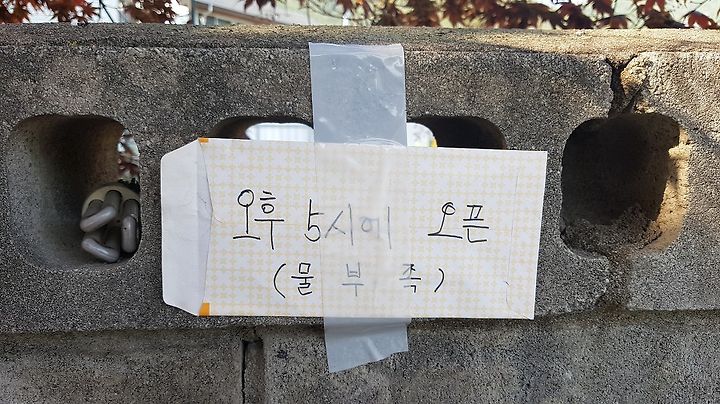 오후 5시에 오픈
(물 부 족)